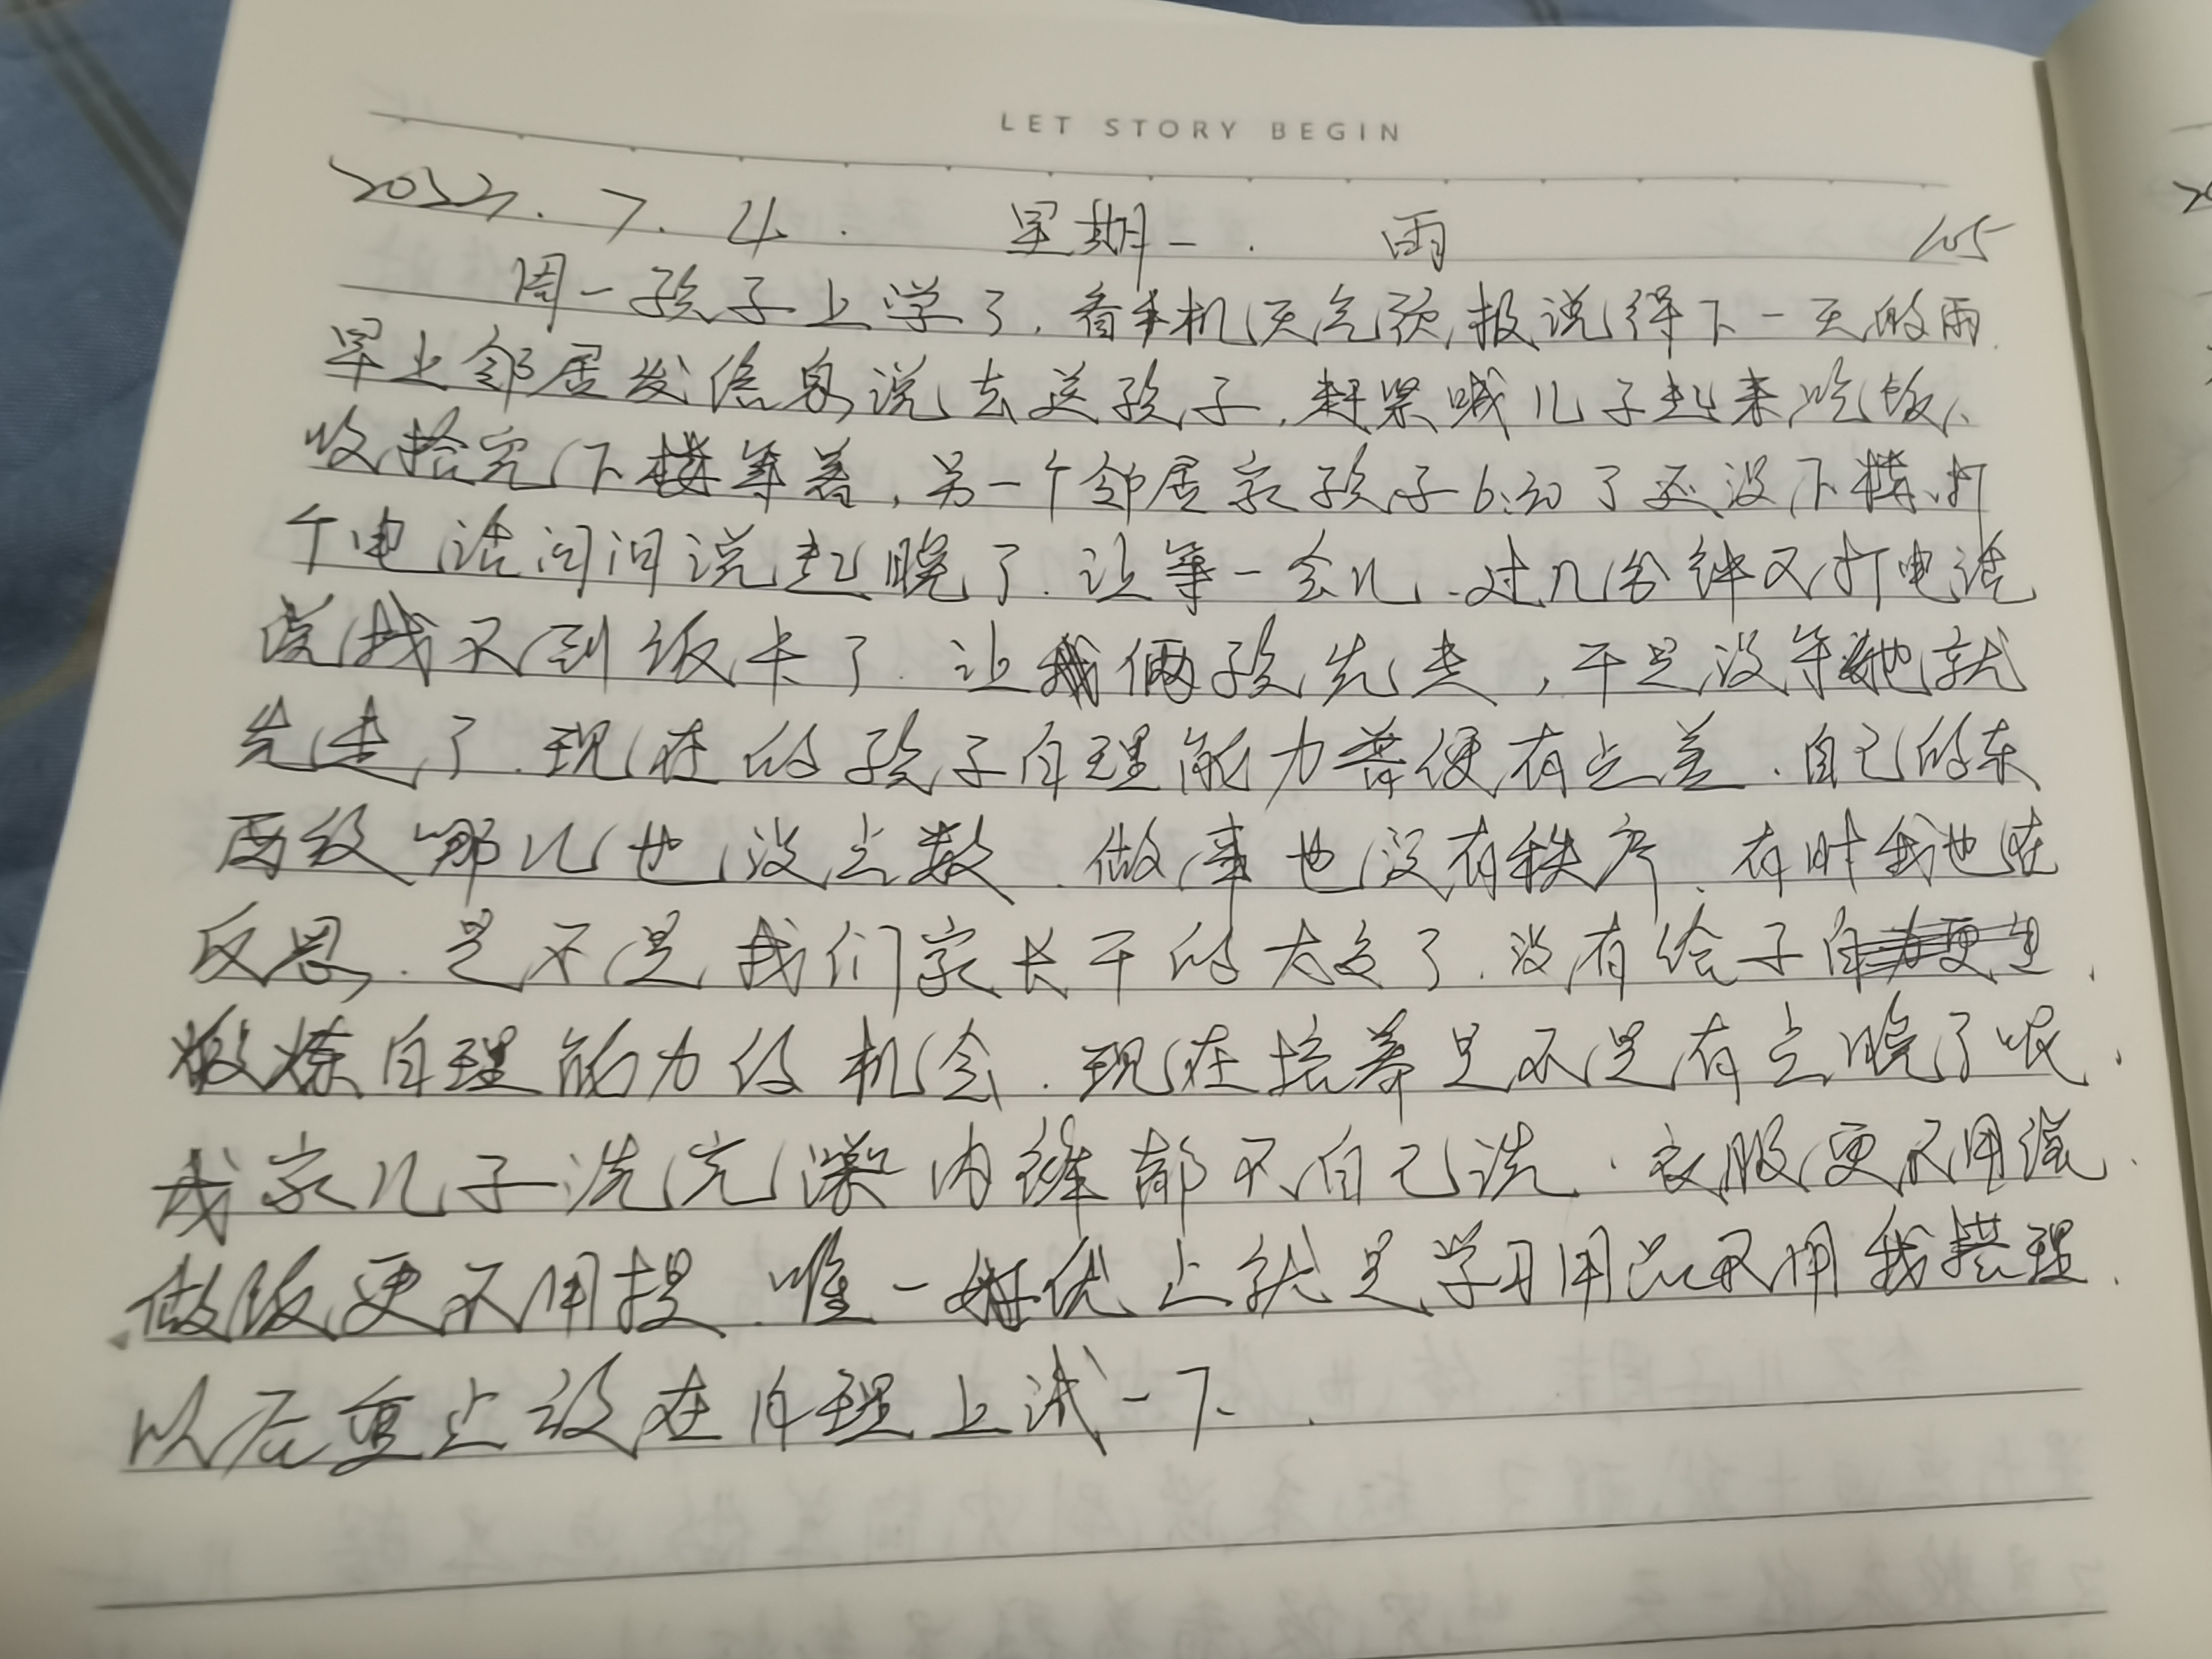 LET STORY BEGIN
2022.7.4. 星期一. 雨 105
周一孩子上学了.看手机天气预报说得下一天的雨.
早上邻居发信息说去送孩子,赶紧喊儿子起来吃饭、
收拾完下楼等着,另一个邻居家孩子6:20了还没下楼.打
个电话问问说起晚了.让等一会儿.过几分钟又打电话
说找不到饭卡了.让我俩孩先走,于是没等她就
先走了.现在的孩子自理能力普便有点差.自己的东
西放哪儿也没点数.做事也没有秩序.有时我也在
反思.是不是我们家长干的太多了.没有给子
锻炼自理能力的机会.现在培养是不是有点晚了呢.
我家儿子洗完澡内裤都不自己洗.衣服更不用说.
做饭更不用提.唯一优点就是学习用品不用我整理.
以后重点放在自理上试一下.